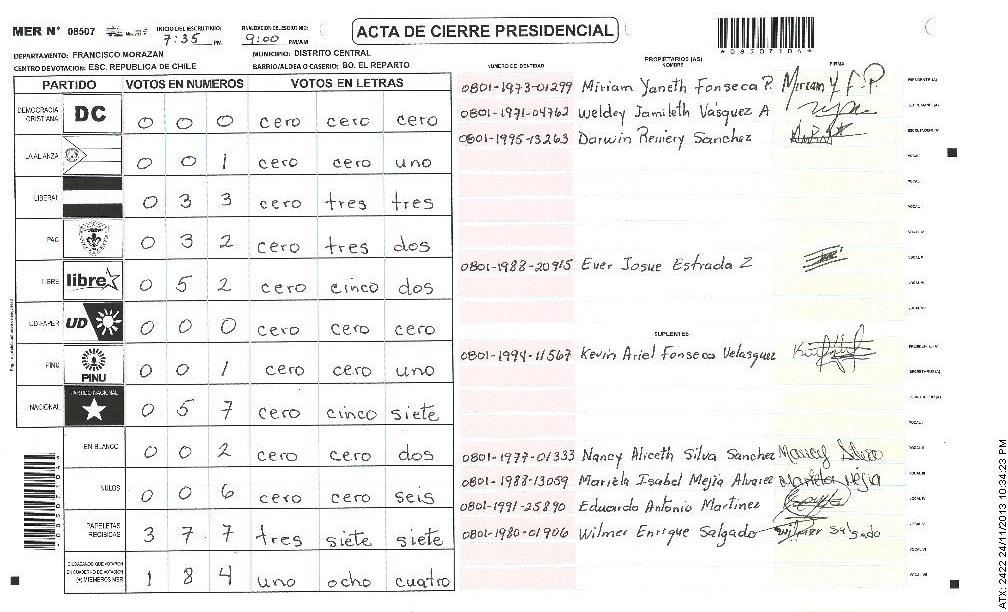 MER N° 08507
INICIO DEL ESCRUTINIO:
7:35 PM
FINALIZACION DEL ESCRUTINIO:
9:00 PM/AM
ACTA DE CIERRE PRESIDENCIAL
DEPARTAMENTO: FRANCISCO MORAZAN
MUNICIPIO: DISTRITO CENTRAL
CENTRO DE VOTACION: ESC. REPUBLICA DE CHILE
BARRIO/ALDEA O CASERIO: BO. EL REPARTO
PARTIDO VOTOS EN NUMEROS VOTOS EN LETRAS
DEMOCRACIA CRISTIANA DC 0 0 0 cero cero cero
LA ALIANZA 0 0 1 cero cero uno
LIBERAL 0 3 3 cero tres tres
PAC 0 3 2 cero tres dos
LIBRE libre 0 5 2 cero cinco dos
UD-FAPER UD 0 0 0 cero cero cero
PINU PINU 0 0 1 cero cero uno
NACIONAL PARTIDO NACIONAL 0 5 7 cero cinco siete
EN BLANCO 0 0 2 cero cero dos
NULOS 0 0 6 cero cero seis
PAPELETAS RECIBIDAS 3 7 7 tres siete siete
CIUDADANOS QUE VOTARON EN CUADERNO DE VOTACION (+) MIEMBROS MER 1 8 4 uno ocho cuatro
NUMERO DE IDENTIDAD
PROPIETARIOS (AS)
NOMBRE
FIRMA
0801-1973-01299 Miriam Yaneth Fonseca P. Miriam Y F.P PRESIDENTE (A)
0801-1971-04762 Weldey Jamileth Vásquez A SECRETARIO (A)
0801-1995-13263 Darwin Reniery Sanchez ESCRUTADOR (A)
VOCAL I
0801-1988-20915 Ever Josue Estrada Z
SUPLENTES
0801-1994-11567 Kevin Ariel Fonseca Velasquez PRESIDENTE (A)
SECRETARIO (A)
ESCRUTADOR (A)
VOCAL I
0801-1977-01333 Nancy Aliceth Silva Sanchez Nancy Silva VOCAL II
0801-1988-13059 Mariela Isabel Mejia Alvarez Mariela Mejia VOCAL III
0801-1991-25890 Eduardo Antonio Martinez VOCAL IV
0801-1980-01906 Wilmer Enrique Salgado Wilmer Salgado VOCAL V
VOCAL VI
VOCAL VII
ATX: 2422 24/11/2013 10:34:23 PM